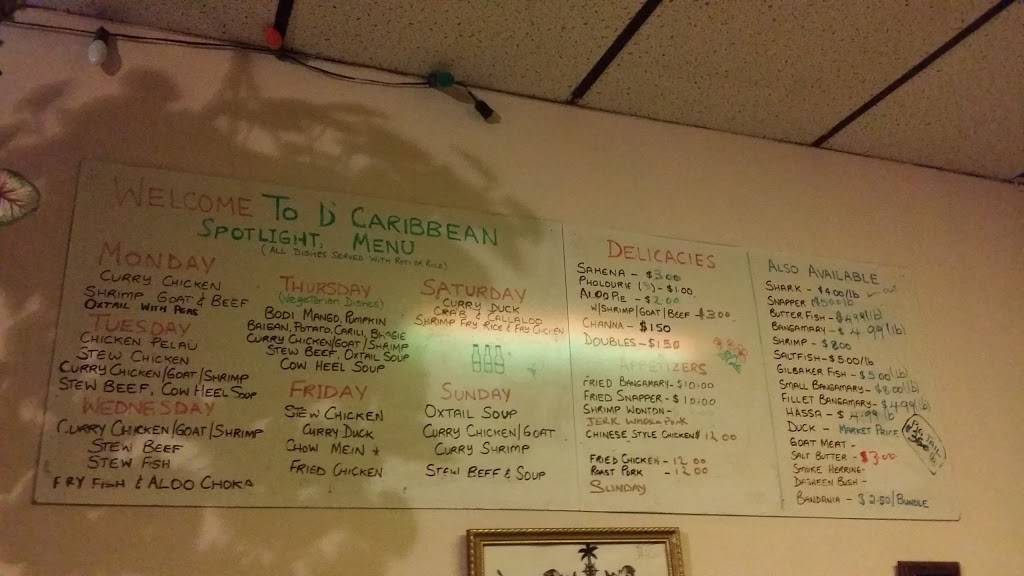 WELCOME TO D' CARIBBEAN
SPOTLIGHT, MENU
(ALL DISHES SERVED WITH ROTI OR RICE)
MONDAY
CURRY CHICKEN
SHRIMP GOAT & BEEF
OXTAIL WITH PEAS
TUESDAY
CHICKEN PELAU
STEW CHICKEN
CURRY CHICKEN/GOAT/SHRIMP
STEW BEEF, COW HEEL SOUP
WEDNESDAY
CURRY CHICKEN/GOAT/SHRIMP
STEW BEEF
STEW FISH
FRY FISH & ALOO CHOKA
THURSDAY
(VEGETARIAN DISHES)
BODI MANGO, PUMPKIN
BAIGAN, POTATO, CARILI, BHAGIE
CURRY CHICKEN/GOAT/SHRIMP
STEW BEEF, OXTAIL SOUP
COW HEEL SOUP
FRIDAY
STEW CHICKEN
CURRY DUCK
CHOW MEIN +
FRIED CHICKEN
SATURDAY
CURRY DUCK
CRAB & CALLALOO
SHRIMP FRY RICE & FRY CHICKEN
SUNDAY
OXTAIL SOUP
CURRY CHICKEN/GOAT
CURRY SHRIMP
STEW BEEF & SOUP
DELICACIES
SAHENA - $3.00
PHOLOURIE (5) - $1.00
ALOO PIE - $2.00
W/SHRIMP/GOAT/BEEF $3.00
CHANNA - $1.50
DOUBLES - $1.50
APPETIZERS
FRIED BANGAMARY - $10.00
FRIED SNAPPER - $10.00
SHRIMP WONTON -
JERK PORK
CHINESE STYLE CHICKEN $12.00
FRIED CHICKEN - 12.00
ROAST PORK - 12.00
SUNDAY
ALSO AVAILABLE
SHARK - $4.00/lb
SNAPPER $5.00/lb
BUTTER FISH - $4.99/lb
BANGAMARY - $4.99/lb
SHRIMP - $8.00
SALTFISH - $5.00/lb
GILBAKER FISH - $5.00/lb
SMALL BANGAMARY - $4.00/lb
FILLET BANGAMARY - $4.99/lb
HASSA - $4.99/lb
DUCK - MARKET PRICE
GOAT MEAT -
SALT BUTTER - $3.00
SMOKE HERRING -
DASHEEN BUSH -
BANDANIA - $2.50/BUNDLE